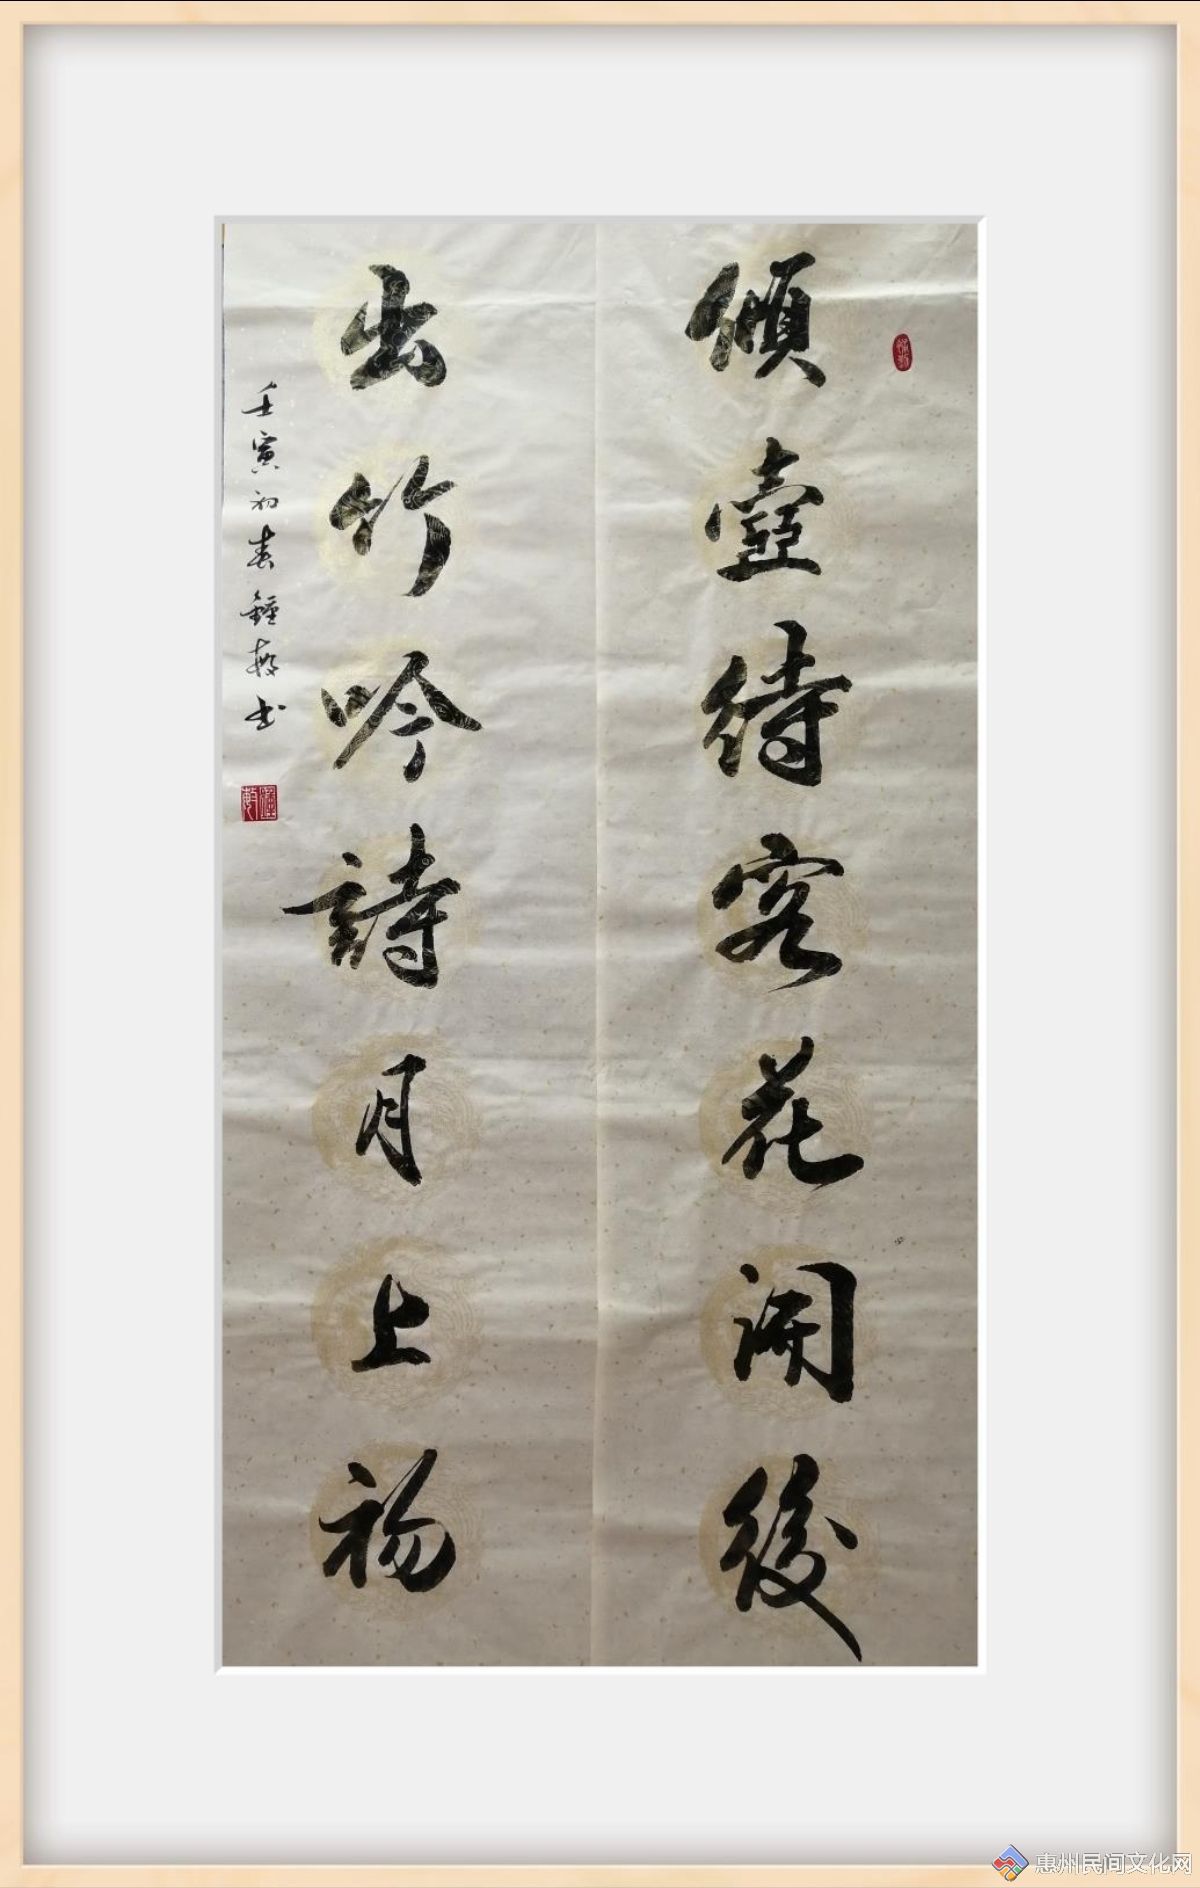 傾壺待客花開後
出竹吟詩月上初
壬寅初春鐘敏书
惠州民间文化网